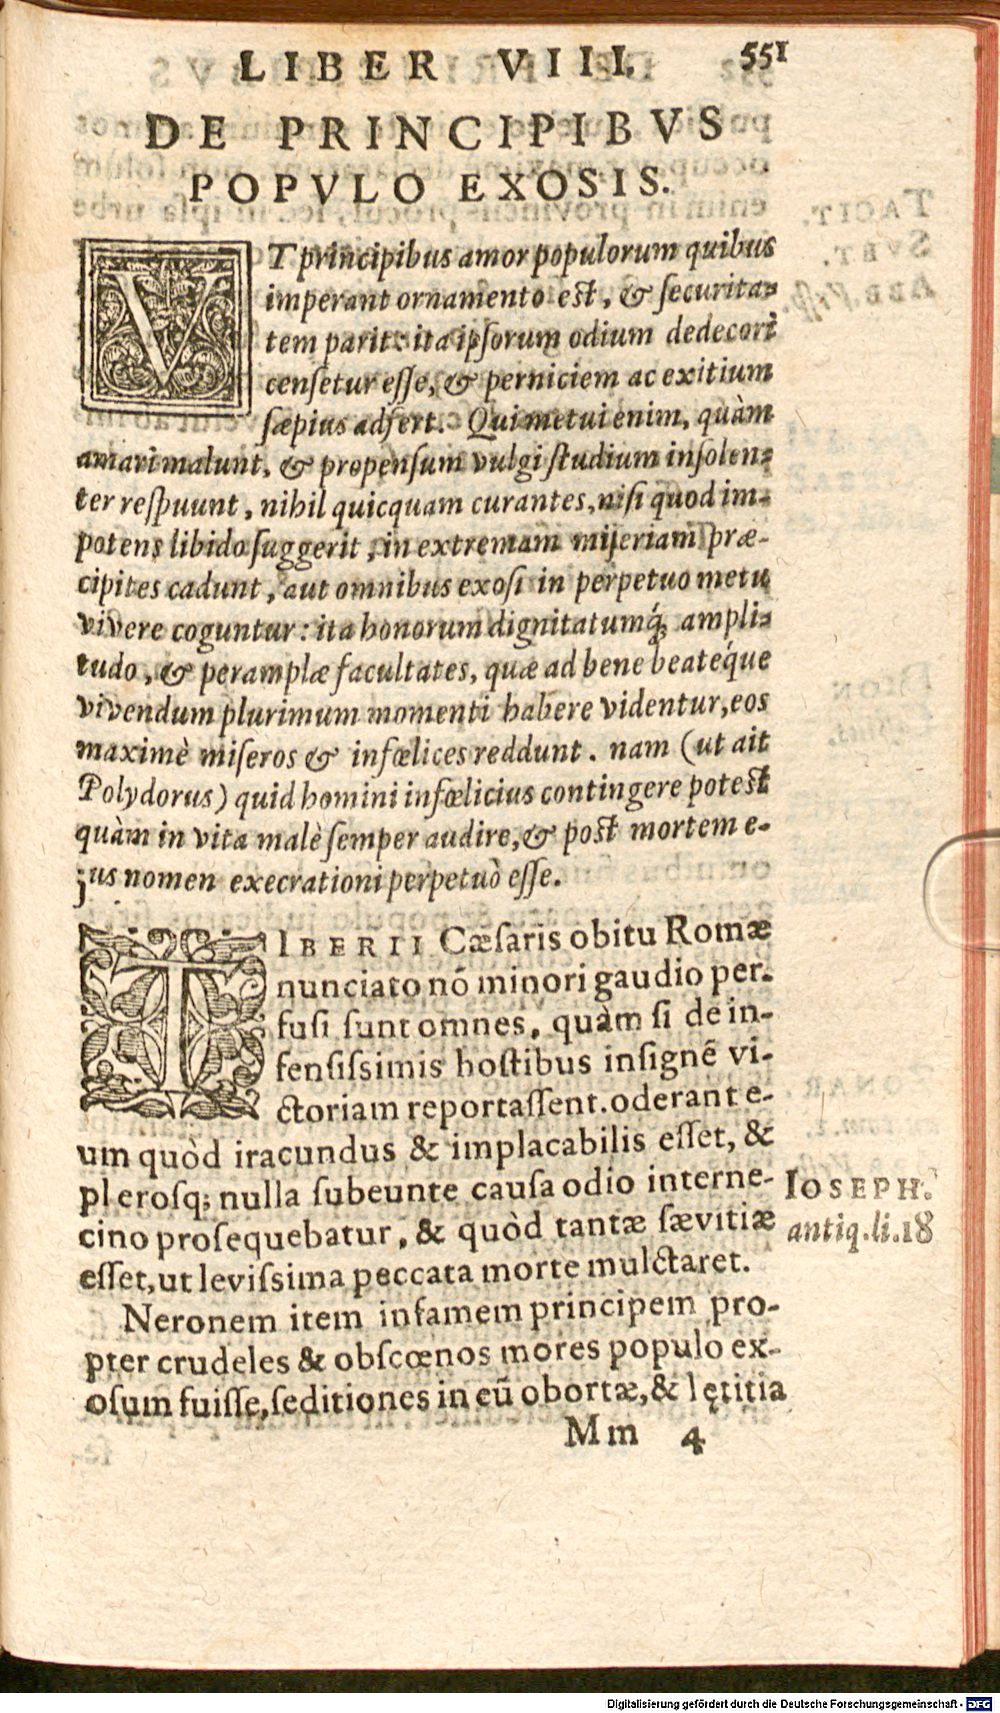 LIBER VIII. 551
DE PRINCIPIBVS
POPVLO EXOSIS.
VT principibus amor populorum quibus
imperant ornamento est, & securita-
tem parit: ita ipsorum odium dedecori
censetur esse, & perniciem ac exitium
sæpius adfert. Qui metui enim, quàm
amari malunt, & propensum vulgi studium insolen-
ter respuunt, nihil quicquam curantes, nisi quod im-
potens libido suggerit, in extremam miseriam præ-
cipites cadunt, aut omnibus exosi in perpetuo metu
vivere coguntur: ita honorum dignitatumq́; ampli-
tudo, & peramplæ facultates, quæ ad bene beateq́ue
vivendum plurimum momenti habere videntur, eos
maximè miseros & infœlices reddunt. nam (ut ait
Polydorus) quid homini infœlicius contingere potest
quàm in vita malè semper audire, & post mortem e-
jus nomen execrationi perpetuò esse.
TIBERII Cæsaris obitu Romæ
nunciato nō minori gaudio per-
fusi sunt omnes, quàm si de in-
fensissimis hostibus insignē vi-
ctoriam reportassent. oderant e-
um quòd iracundus & implacabilis esset, &
plerosq; nulla subeunte causa odio interne-
cino prosequebatur, & quòd tantæ sævitiæ
esset, ut levissima peccata morte mulctaret.
IOSEPH.
antiq. li. 18
Neronem item infamem principem pro-
pter crudeles & obscœnos mores populo ex-
osum fuisse, seditiones in eū obortæ, & lętitia
Mm 4
Digitalisierung gefördert durch die Deutsche Forschungsgemeinschaft - DFG